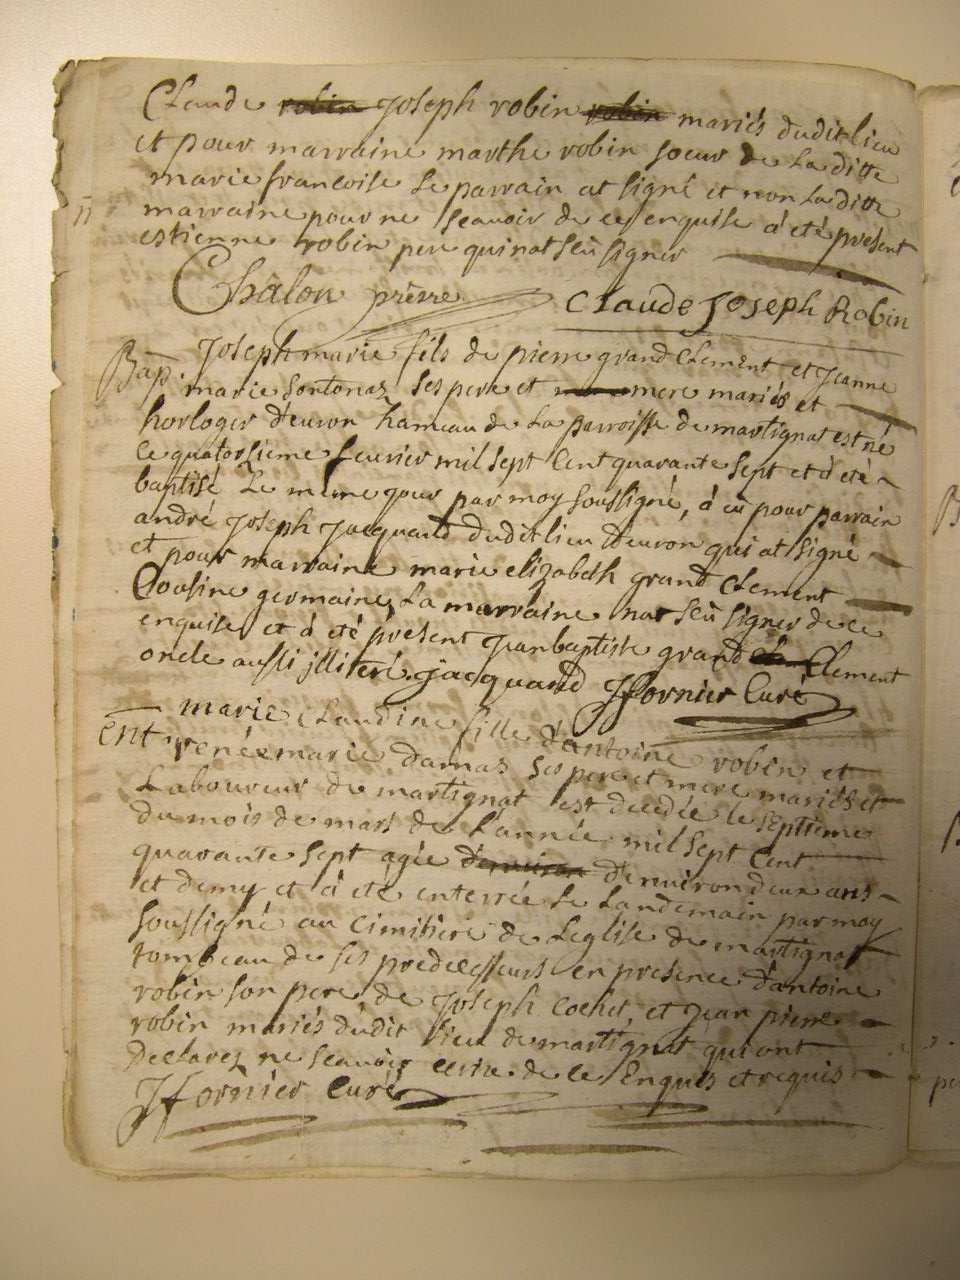 Claude robin Joseph robin robin mariés dudit lieu
et pour marraine marthe robin soeur de la ditte
marie francoise le parrain at signé et non la ditte
marraine pour ne sçauoir de ce enquise à été présent
estienne robin pere qui nat sçû signer
Châlon prêtre Claude Joseph Robin
Bap. Joseph marie fils de pierre grand Clement et Jeanne
marie sontonaz ses pere et mere mariés et
horloger d'euron hameau de la parroisse de martignat est né
le quatorsieme feurier mil sept cent quarante sept et à été
baptisé le même jour par moy soussigné, à eu pour parrain
andré Joseph Jacquand dudit lieu d'euron qui at signé
et pour marraine marie elizabeth grand Clement
Cousine germaine, la marraine nat sçû signer de ce
enquise, et à été présent Jean baptiste grand Clement
oncle aussi jlliteré. jacquand Jfornier Curé
marie claudine fille d'antoine robin et
Ent renée marie damas ses pere et mere mariés et
Laboureur de martignat est decedée le septieme
du mois de mars de l'année mil sept Cent
quarante sept agée d'enuiron d'enuiron deux ans
et demy et à été enterrée le landemain par moy
soussigné au Cimitiere de leglise de martignat
tombeau de ses predecesseurs en presence d'antoine
robin son pere de Joseph Cochet, et Jean pierre
robin mariés dudit lieu de martignat qui ont
declarez ne sçauoir ecrire de ce Enquis et requis
Jfornier Curé